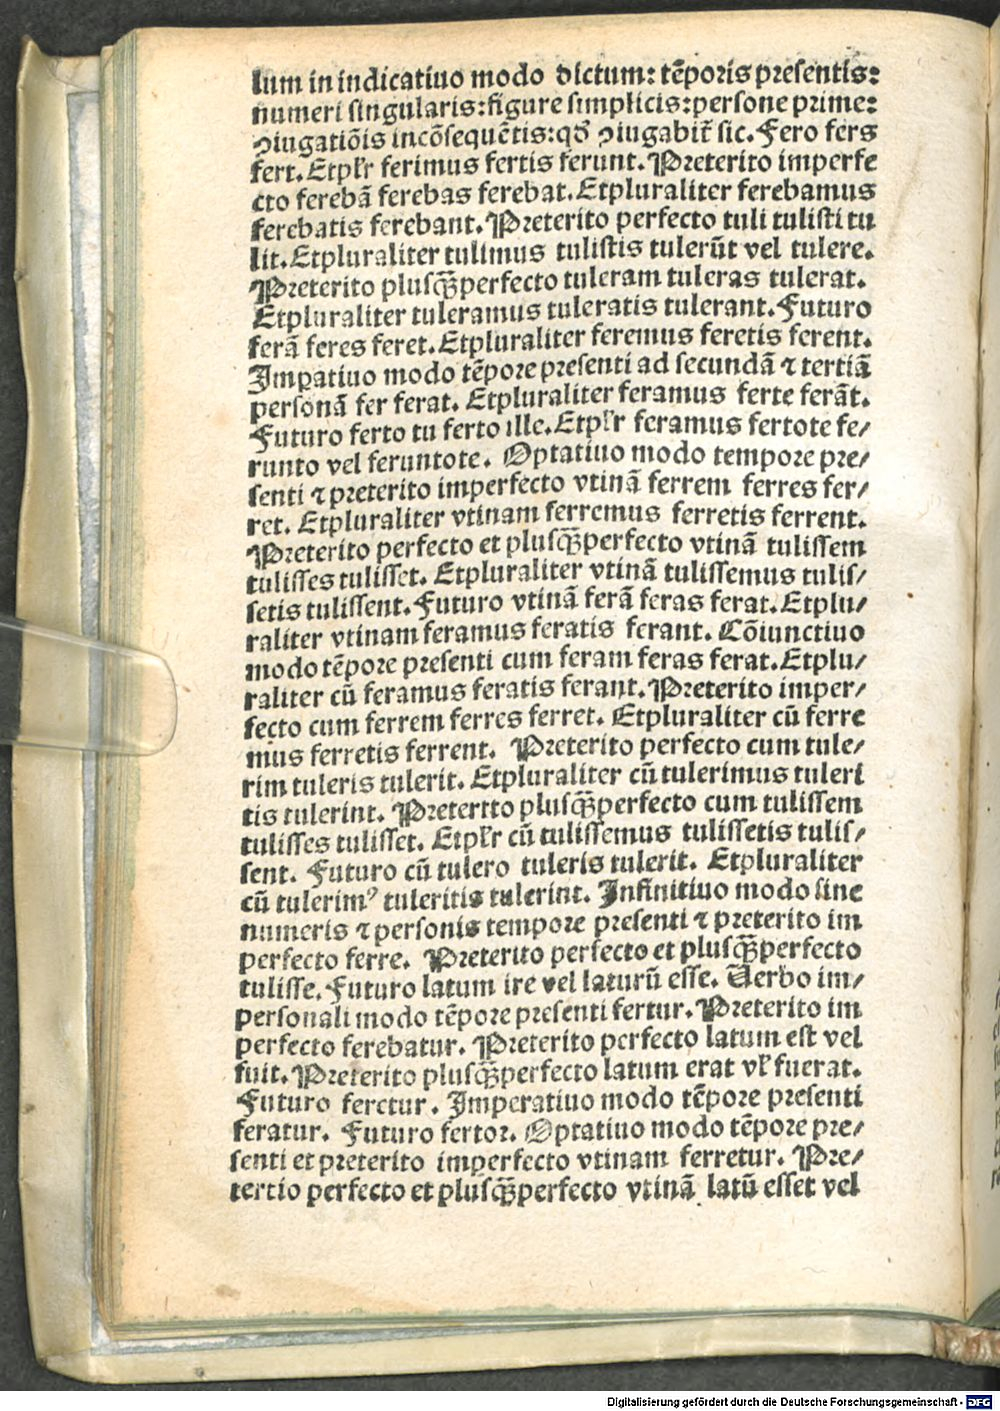 lum in indicatiuo modo dictum: tēporis presentis:
numeri singularis: figure simplicis: persone prime:
ↄiugatiōis incōsequētis: qđ ↄiugabit̃ sic. Fero fers
fert. Etpl̕r ferimus fertis ferunt. Preterito imperfe
cto ferebã ferebas ferebat. Etpluraliter ferebamus
ferebatis ferebant. Preterito perfecto tuli tulisti tu
lit. Etpluraliter tulimus tulistis tulerũt vel tulere.
Preterito plusq̃perfecto tuleram tuleras tulerat.
Etpluraliter tuleramus tuleratis tulerant. Futuro
ferã feres feret. Etpluraliter feremus feretis ferent.
Imꝑatiuo modo tẽpore presenti ad secundã ⁊ tertiã
personã fer ferat. Etpluraliter feramus ferte ferãt.
Futuro ferto tu ferto ille. Etpl̕r feramus fertote fe/
runto vel feruntote. Optatiuo modo tempore pre/
senti ⁊ preterito imperfecto vtinã ferrem ferres fer/
ret. Etpluraliter vtinam ferremus ferretis ferrent.
Preterito perfecto et plusq̃perfecto vtinã tulissem
tulisses tulisset. Etpluraliter vtinã tulissemus tulis/
setis tulissent. Futuro vtinã ferã feras ferat. Etplu/
raliter vtinam feramus feratis ferant. Cõiunctiuo
modo tẽpore presenti cum feram feras ferat. Etplu/
raliter cũ feramus feratis ferant. Preterito imper/
fecto cum ferrem ferres ferret. Etpluraliter cũ ferre
mus ferretis ferrent. Preterito perfecto cum tule/
rim tuleris tulerit. Etpluraliter cũ tulerimus tuleri
tis tulerint. Pretertto plusq̃perfecto cum tulissem
tulisses tulisset. Etpl̕r cũ tulissemus tulissetis tulis/
sent. Futuro cũ tulero tuleris tulerit. Etpluraliter
cũ tulerimꝰ tuleritis tulerint. Infinitiuo modo sine
numeris ⁊ personis tempore presenti ⁊ preterito im
perfecto ferre. Preterito perfecto et plusq̃perfecto
tulisse. Futuro latum ire vel laturũ esse. Uerbo im/
personali modo tẽpore presenti fertur. Preterito im
perfecto ferebatur. Preterito perfecto latum est vel
fuit. Preterito plusq̃perfecto latum erat vl̕ fuerat.
Futuro feretur. Imperatiuo modo tẽpore presenti
feratur. Futuro fertor. Optatiuo modo tẽpore pre/
senti et preterito imperfecto vtinam ferretur. Pre/
tertio perfecto et plusq̃perfecto vtinã latũ esset vel
Digitalisierung gefördert durch die Deutsche Forschungsgemeinschaft - DFG